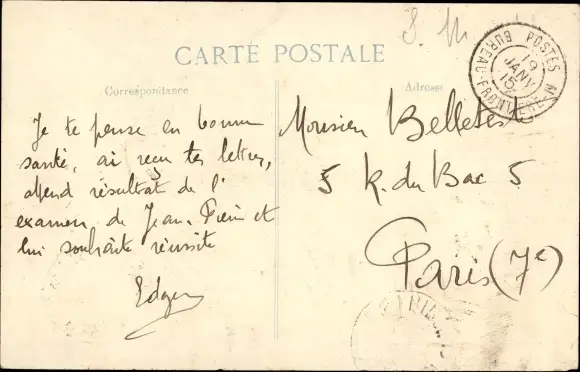 S. M.
CARTE POSTALE
Correspondance
Adresse
Je te pense en bonne
santé, ai reçu tes lettres,
attend résultat de l'
examen de Jean-Pierre et
lui souhaite réussite
Edgar
Monsieur Belletest
5 R. du Bac 5
Paris (7e)
POSTES
19
JANV
15
BUREAU-FRONTIERE N